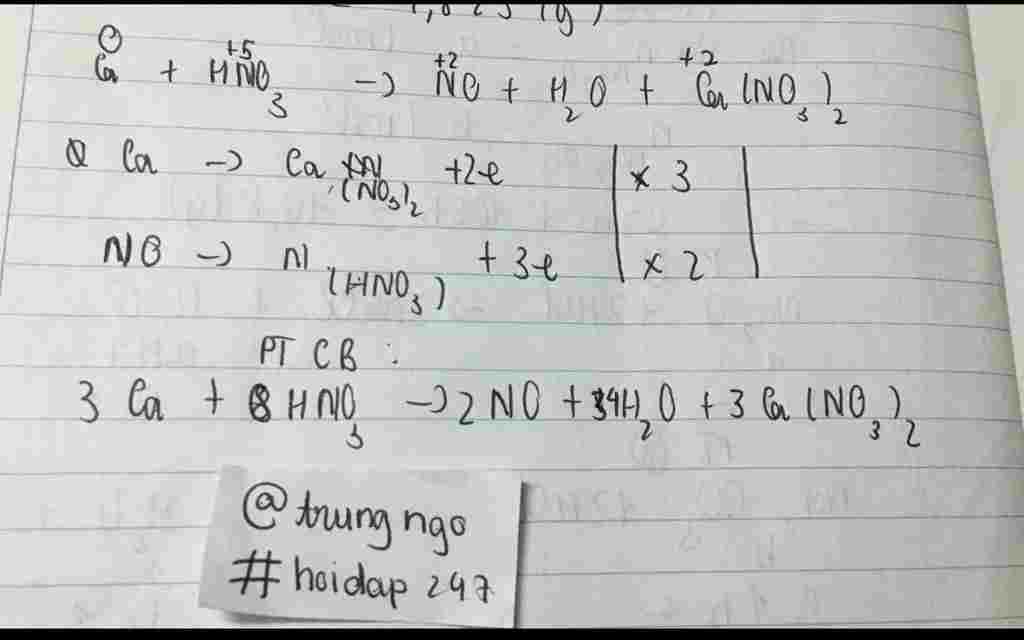 0 +5 +2 +2
Ca + HNO₃ → NO + H₂O + Ca(NO₃)₂
Ca → Ca (NO₃)₂ +2e | x 3 |
NO → N (HNO₃) + 3e | x 2 |
PT CB :
3 Ca + 8 HNO₃ → 2 NO + 4H₂O + 3 Ca(NO₃)₂
@trung ngo
# hoidap 247